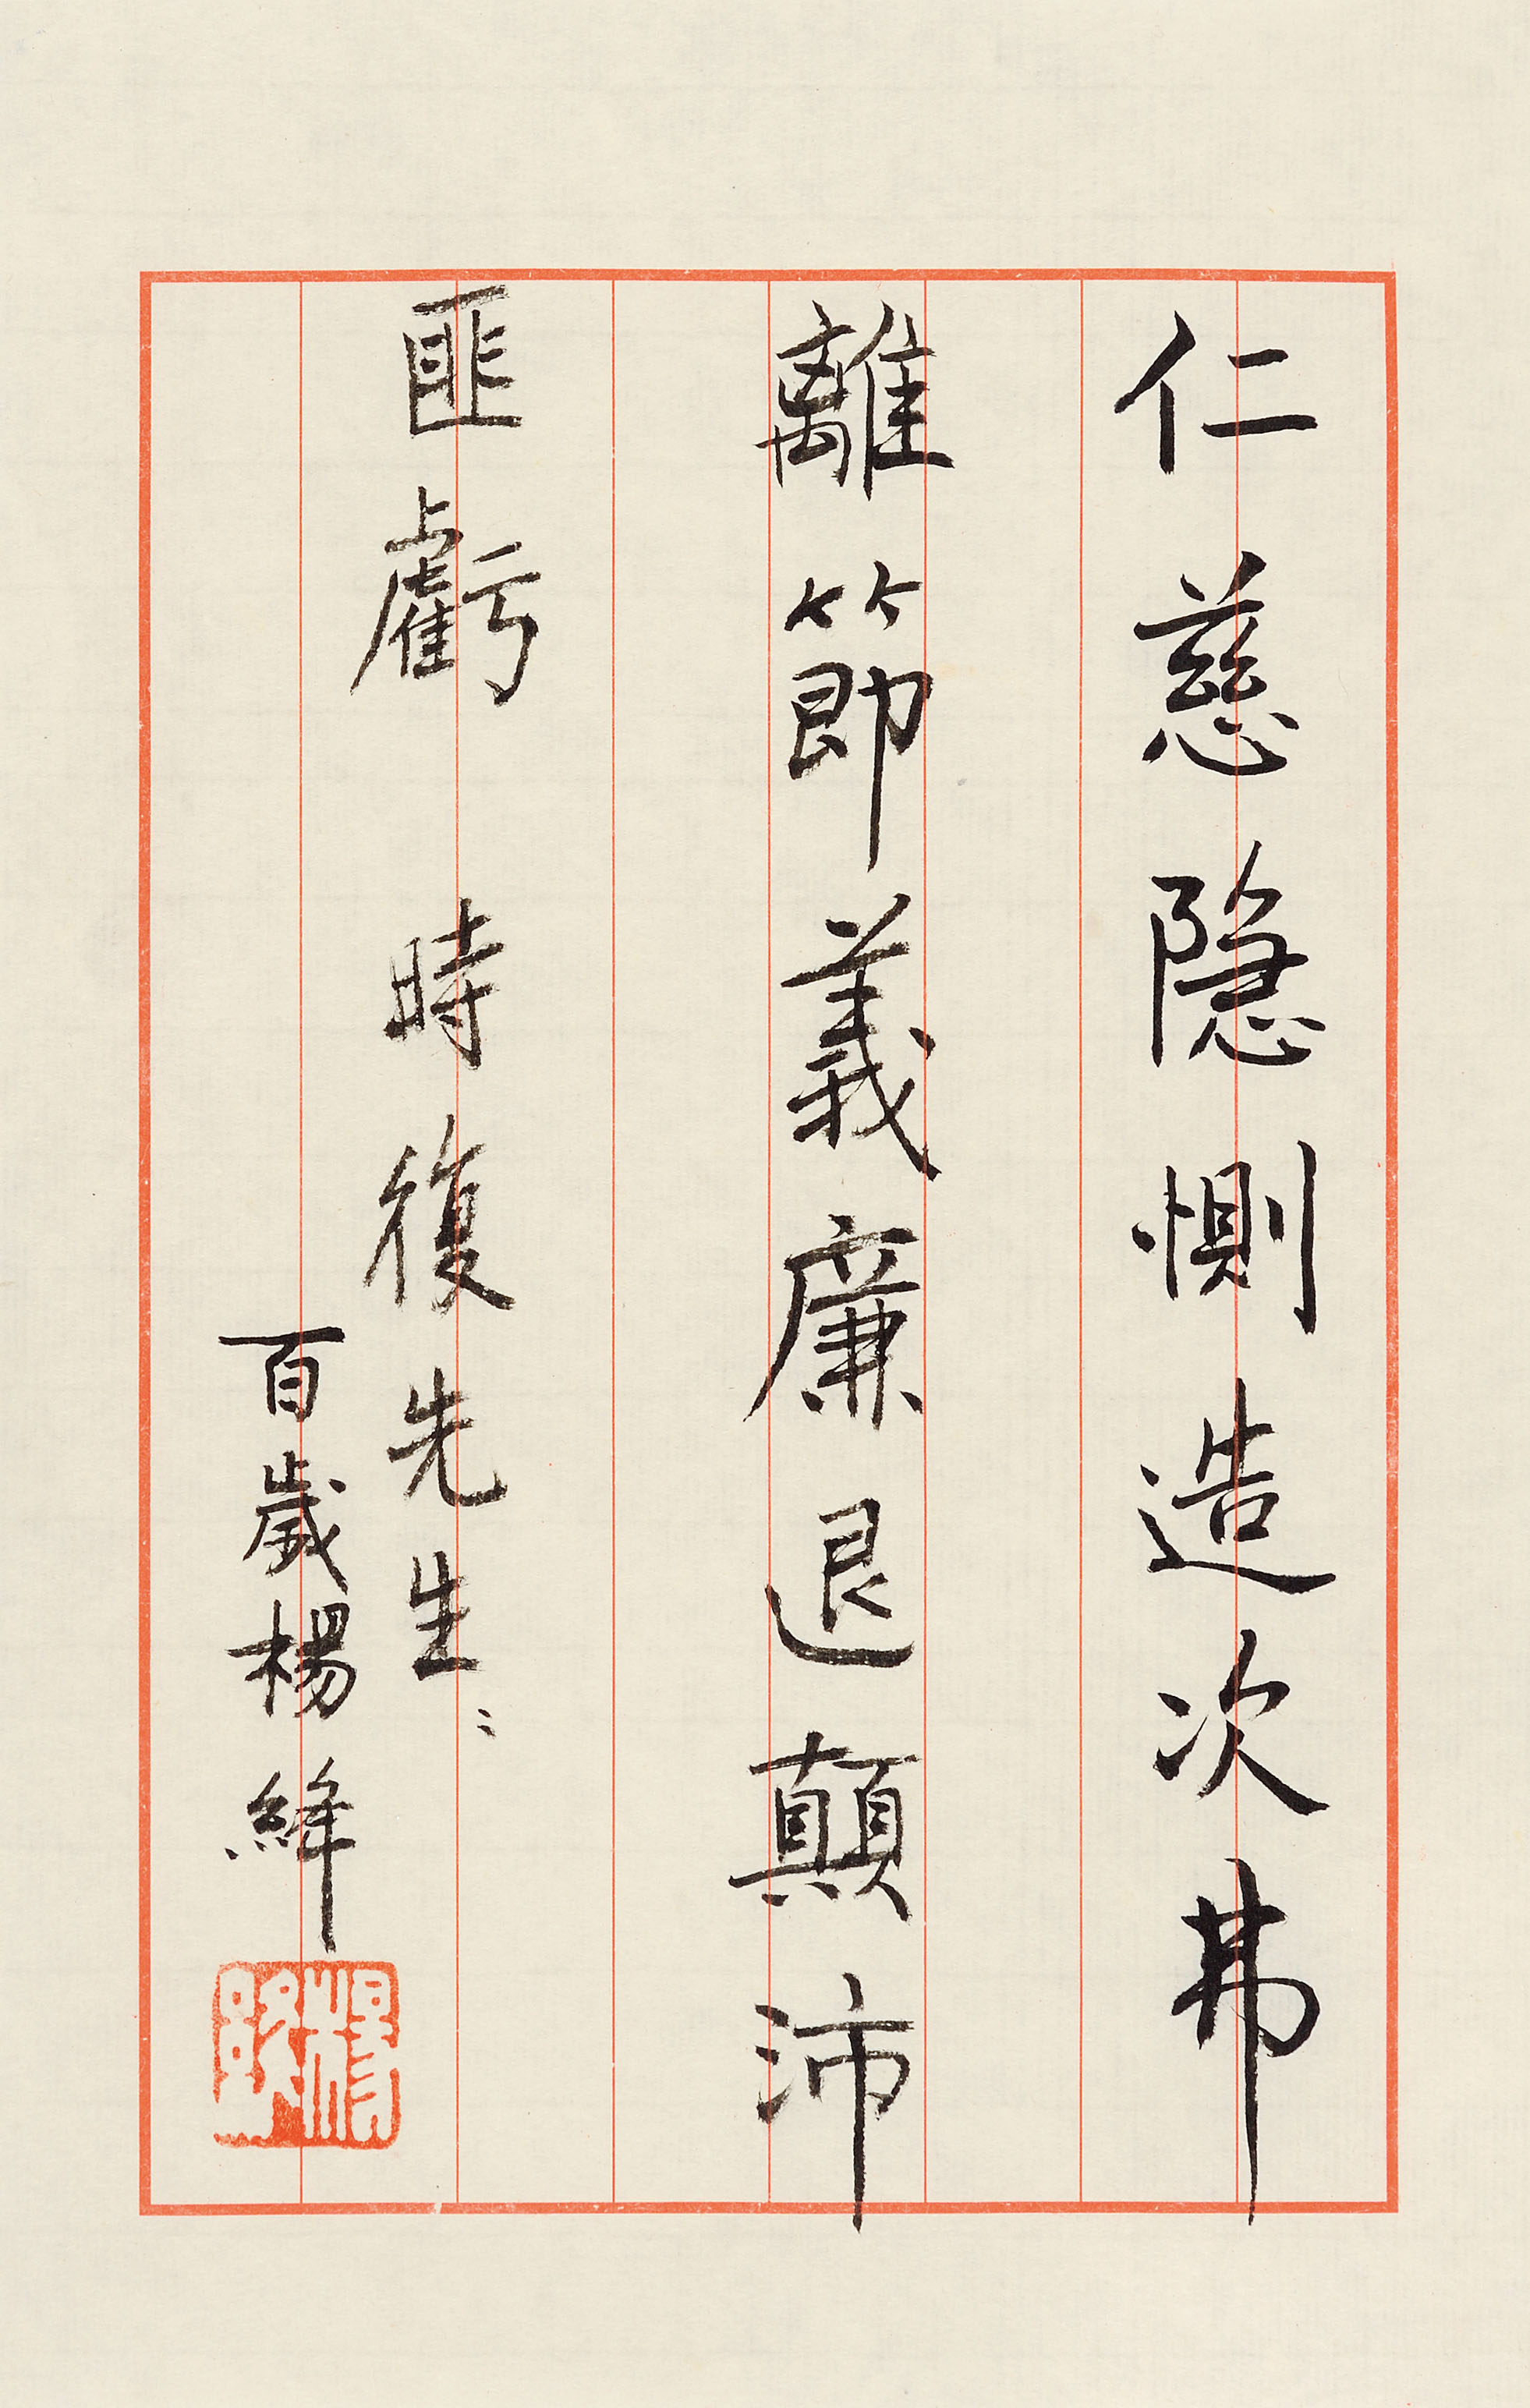 仁慈隐惻造次弗
離節義廉退顛沛
匪虧 時復先生
百歲楊絳